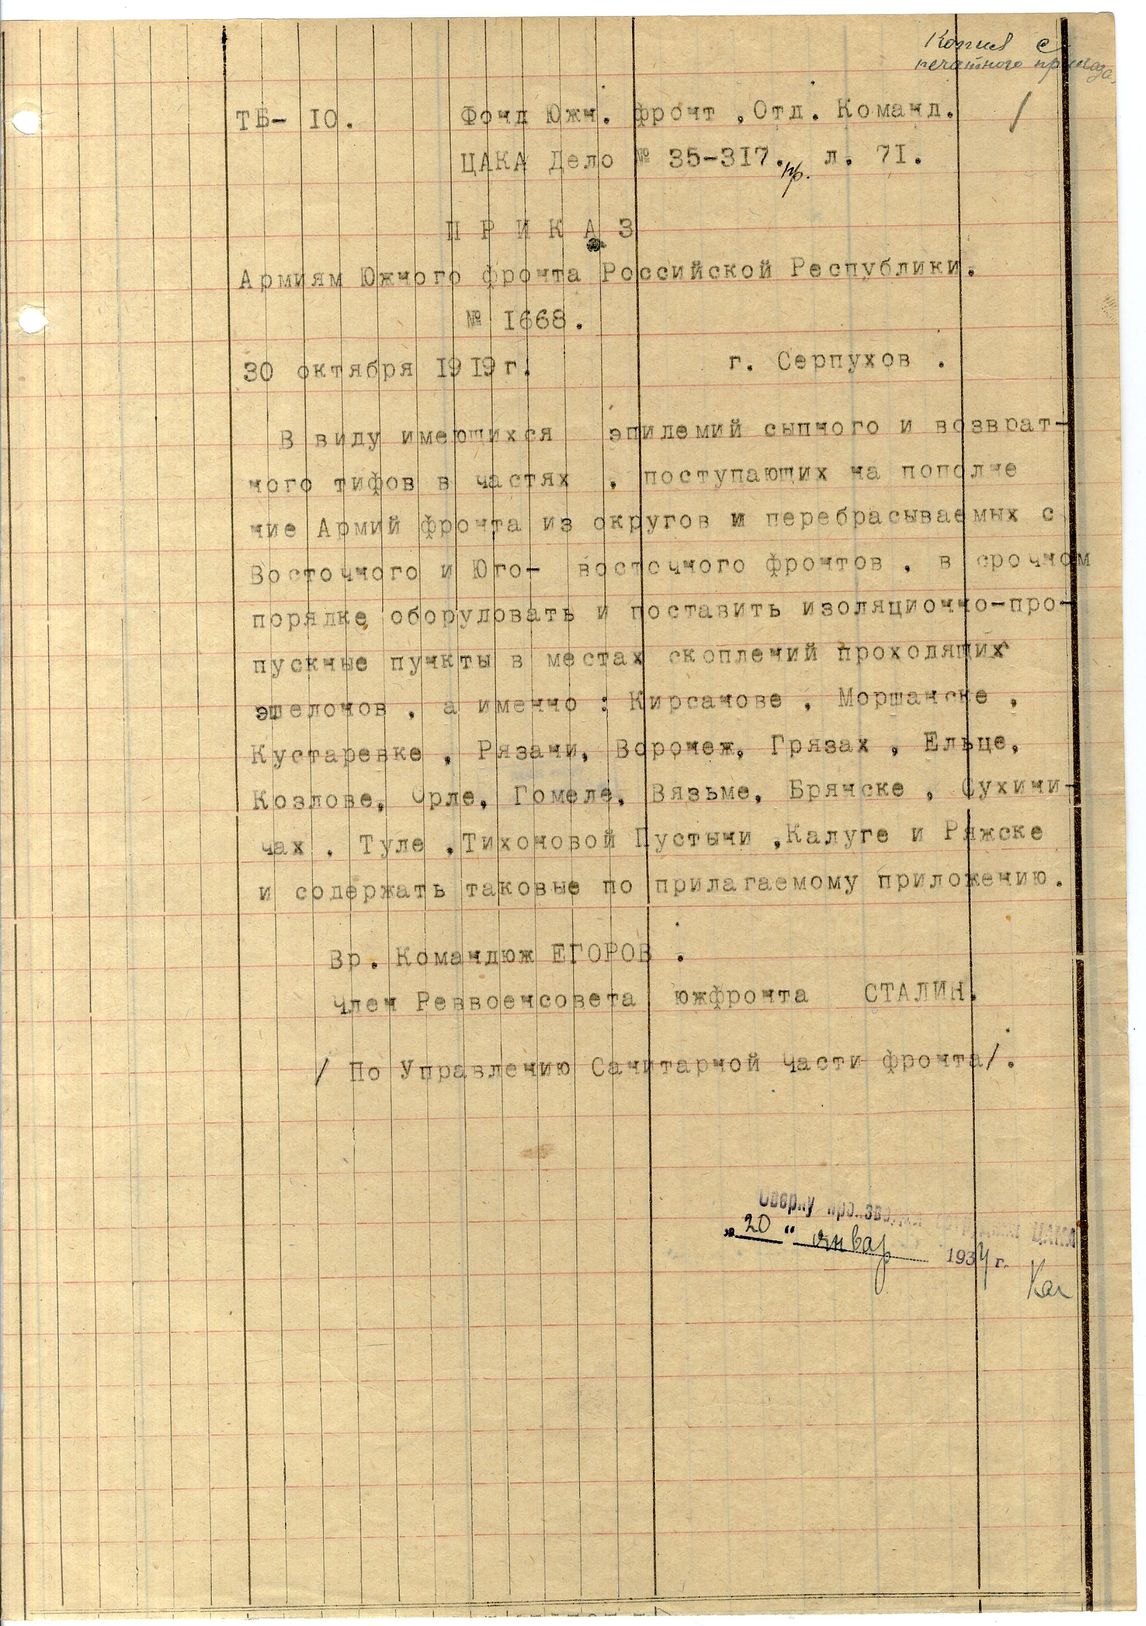 Копия с
печатного приказа.
ТБ- 10. Фонд Южн. фронт ,Отд. Команд.
ЦАКА Дело № 35-317. л. 71.
П Р И К А З
Армиям Южного фронта Российской Республики.
№ 1668.
30 октября 1919 г. г. Серпухов .
В виду имеющихся эпидемий сыпного и возврат-
ного тифов в частях , поступающих на пополне
ние Армий фронта из округов и перебрасываемых с
Восточного и Юго- восточного фронтов , в срочном
порядке оборудовать и поставить изоляционно-про-
пускные пункты в местах скоплений проходящих
эшелонов , а именно : Кирсанове , Моршанске ,
Кустаревке , Рязани, Воронеж, Грязах , Ельце,
Козлове, Орле, Гомеле, Вязьме, Брянске , Сухини-
чах . Туле ,Тихоновой Пустыни ,Калуге и Ряжске
и содержать таковые по прилагаемому приложению.
Вр. Командюж ЕГОРОВ .
Член Реввоенсовета южфронта СТАЛИН.
/ По Управлению Санитарной Части фронта/.
Сверку произвел ЦАКА
„20“ январ 1934 г.